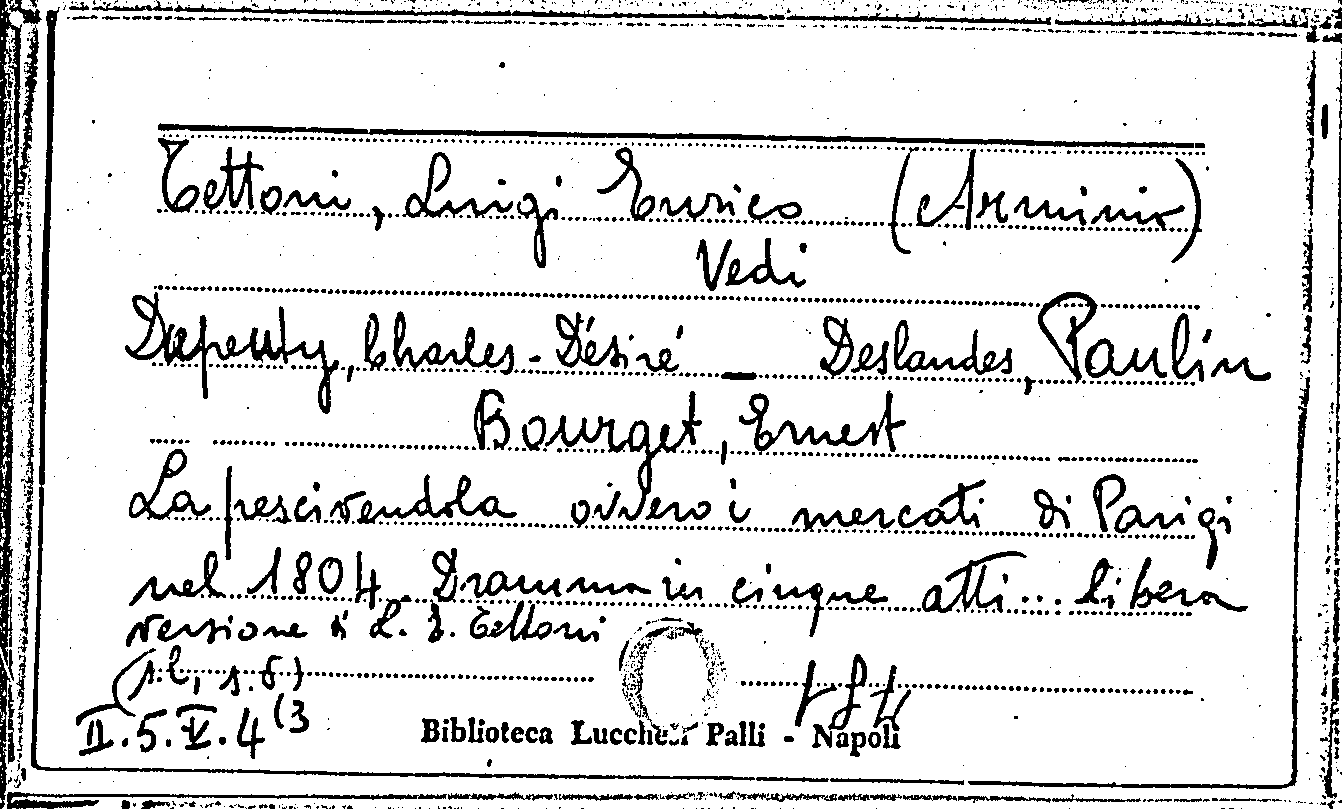 Tettoni, Luigi Enrico (Arminio)
Vedi
Dupeuty, Charles-Désiré — Deslandes, Paulin
Bourget, Ernest
La pescivendola ovvero i mercati di Parigi
nel 1804. Dramma in cinque atti... libera
versione di L. E. Tettoni
(s.l., s.t.)
II.5.V.4(3
Biblioteca Lucchesi Palli - Napoli